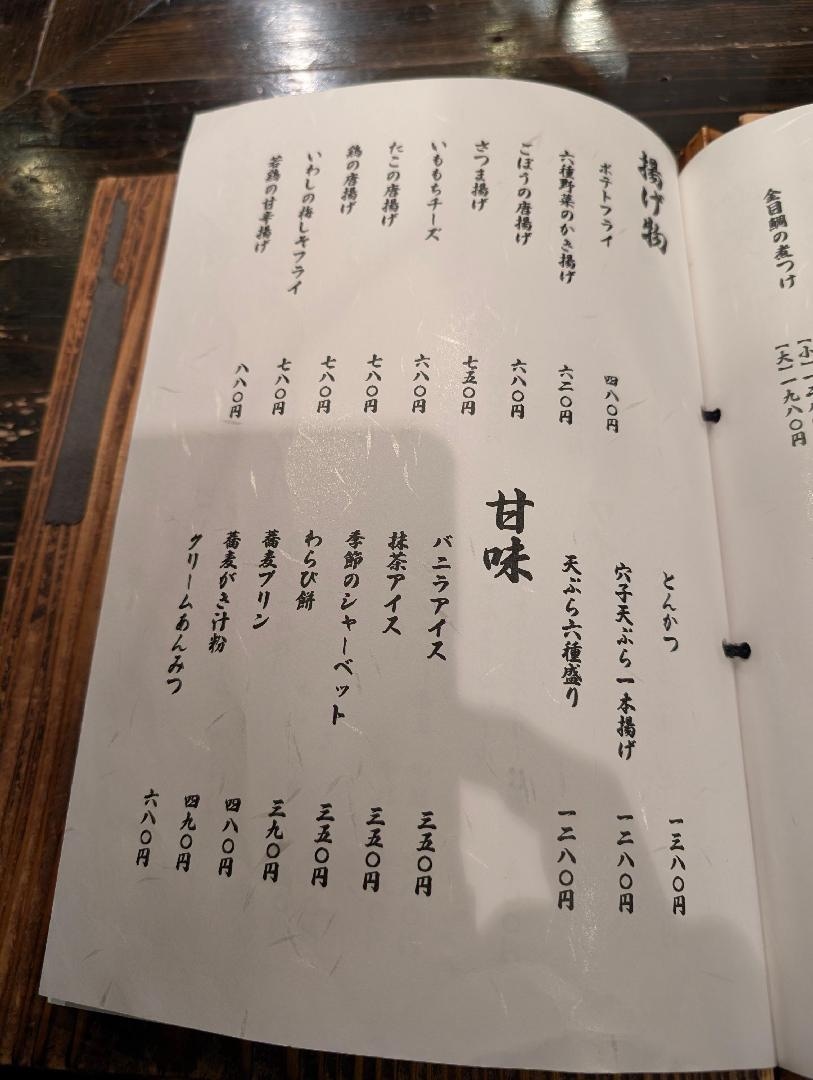 金目鯛の煮つけ
【大】一九八〇円
揚げ物
ポテトフライ 四八〇円
六種野菜のかき揚げ 六二〇円
ごぼうの唐揚げ 六八〇円
さつま揚げ 七五〇円
いももちチーズ 六八〇円
たこの唐揚げ 七八〇円
鶏の唐揚げ 七八〇円
いわしの梅しそフライ 七八〇円
若鶏の甘辛揚げ 八八〇円
とんかつ 一三八〇円
穴子天ぷら一本揚げ 一二八〇円
天ぷら六種盛り 一二八〇円
甘味
バニラアイス 三五〇円
抹茶アイス 三五〇円
季節のシャーベット 三五〇円
わらび餅 三九〇円
蕎麦プリン 四八〇円
蕎麦がき汁粉 四九〇円
クリームあんみつ 六八〇円